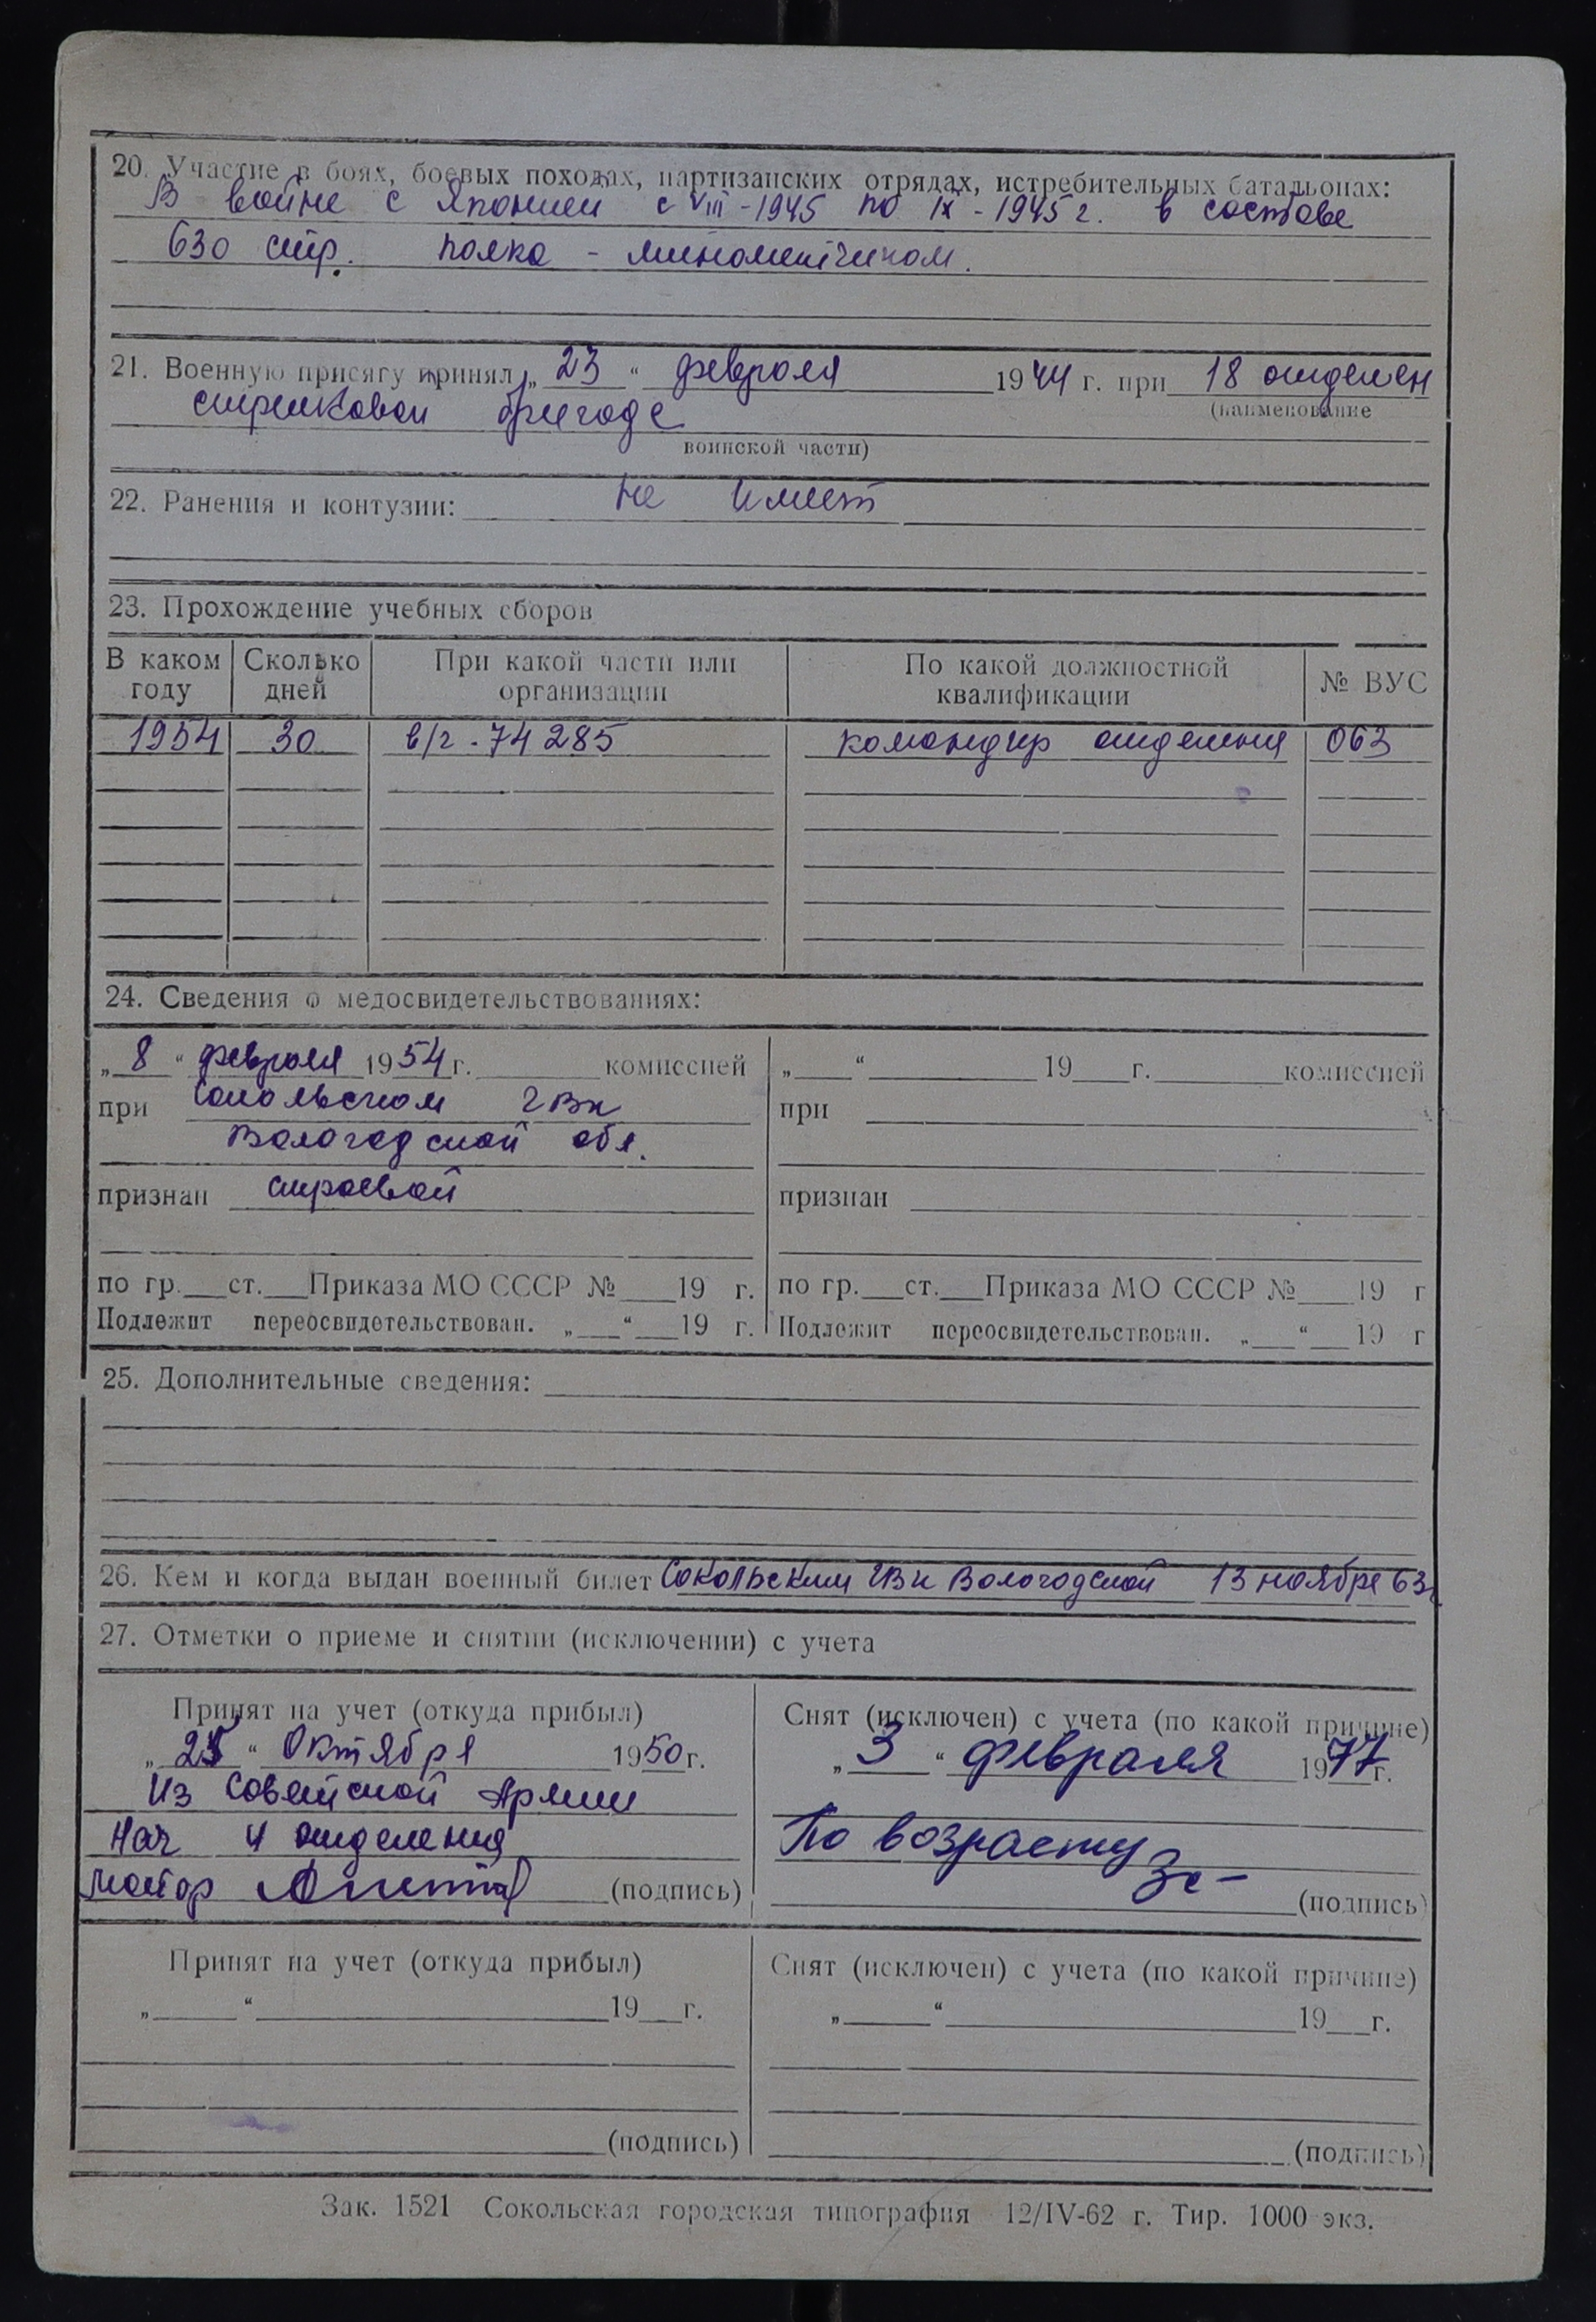 20. Участие в боях, боевых походах, партизанских отрядах, истребительных батальонах:
В войне с Японией с VIII-1945 по IX-1945 г. в составе
630 стр. полка - минометчиком.
21. Военную присягу принял „23“ февраля 1944 г. при 18 отделен
стрелковой бригаде
(наименование
воинской части)
22. Ранения и контузии: не имеет
23. Прохождение учебных сборов
В каком году Сколько дней При какой части или организации По какой должностной квалификации № ВУС
1954 30 в/г - 74285 командир отделения 063
24. Сведения о медосвидетельствованиях:
„8“ февраля 1954 г. комиссией
при Сокольском ГВК
Вологодской обл.
признан строевой
по гр. ст. Приказа МО СССР № 19 г.
Подлежит переосвидетельствован. „ “ 19 г.
„ “ 19 г. комиссией
при
признан
по гр. ст. Приказа МО СССР № 19 г
Подлежит переосвидетельствован. „ “ 19 г
25. Дополнительные сведения:
26. Кем и когда выдан военный билет Сокольским ГВК Вологодской 13 ноября 63г.
27. Отметки о приеме и снятии (исключении) с учета
Принят на учет (откуда прибыл)
„25“ Октября 1950 г.
Из Советской Армии
Нач 4 отделения
майор (подпись)
Снят (исключен) с учета (по какой причине)
„3“ февраля 1977 г.
По возрасту
(подпись)
Принят на учет (откуда прибыл)
„ “ 19 г.
(подпись)
Снят (исключен) с учета (по какой причине)
„ “ 19 г.
(подпись)
Зак. 1521 Сокольская городская типография 12/IV-62 г. Тир. 1000 экз.